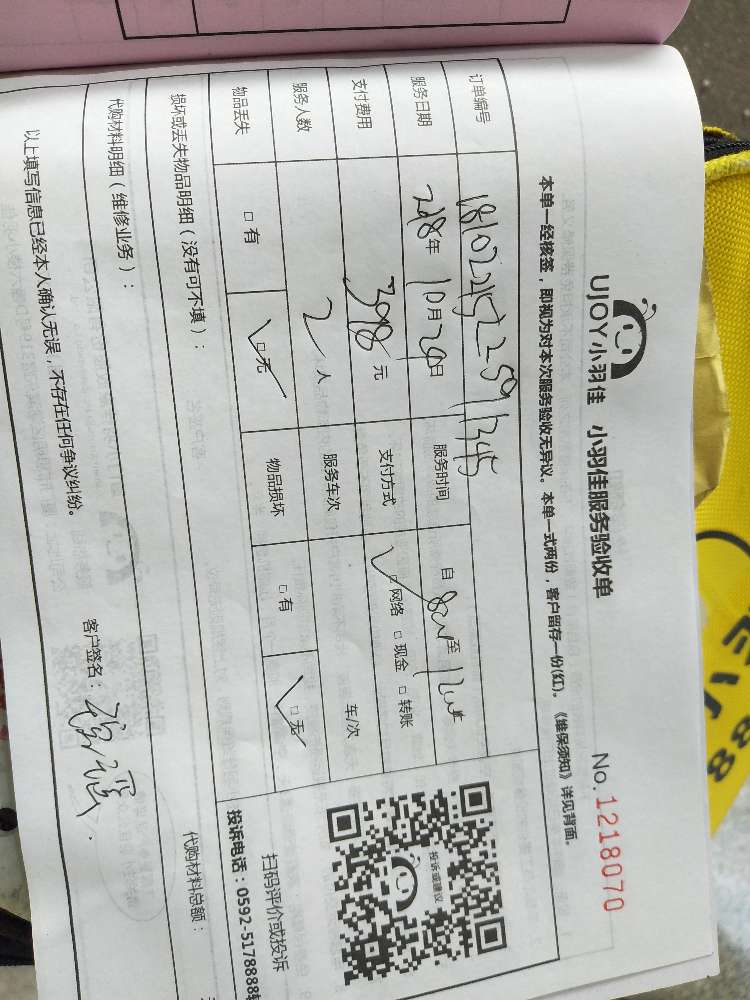 UJOY小羽佳 小羽佳服务验收单
No.1218070
本单一经核签，即视为对本次服务验收无异议。本单一式两份，客户留存一份(红)。《维保须知》详见背面。
订单编号
服务日期 2018年 10月24日 服务时间 自 8:00 至 12:00
支付费用 398元 支付方式 □网络 □现金 □转账
服务人数 2人 服务车次 车/次
物品丢失 □有 □无 物品损坏 □有 □无
投诉或建议
扫码评价或投诉
投诉电话：0592-5178888转
损坏或丢失物品明细（没有可不填）：
代购材料明细（维修业务）： 代购材料总额：
以上填写信息已经本人确认无误，不存在任何争议纠纷。 客户签名：
88